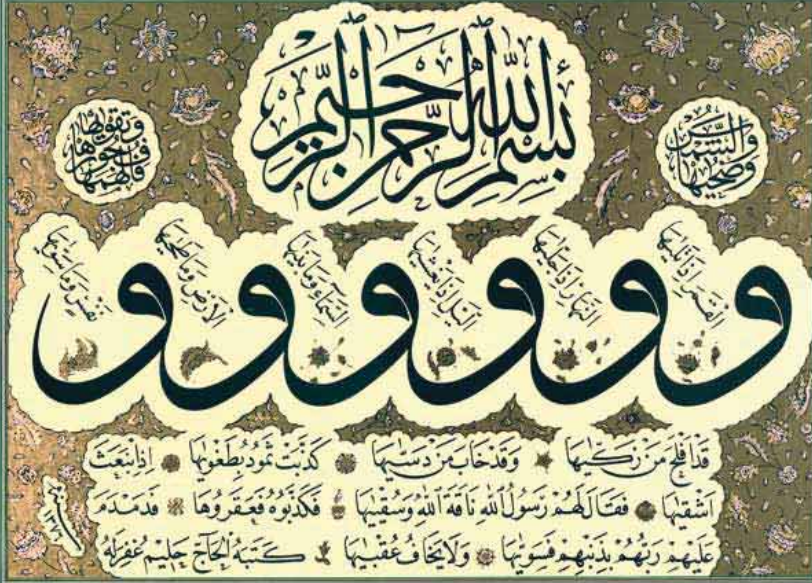 بِسْمِ اللهِ الرَّحْمٰنِ الرَّحِيمِ
وَالشَّمْسِ وَضُحٰيهَا
و الْقَمَرِ اِذَا تَلٰيهَا
و النَّهَارِ اِذَا جَلّٰيهَا
و الَّيْلِ اِذَا يَغْشٰيهَا
و السَّمَاءِ وَمَا بَنٰيهَا
و الْاَرْضِ وَمَا طَحٰيهَا
و نَفْسٍ وَمَا سَوّٰيهَا
فَاَلْهَمَهَا فُجُورَهَا وَتَقْوٰيهَا
قَدْ اَفْلَحَ مَنْ زَكّٰيهَا وَقَدْ خَابَ مَنْ دَسّٰيهَا كَذَّبَتْ ثَمُودُ بِطَغْوٰيهَا اِذِ انْبَعَثَ
اَشْقٰيهَا فَقَالَ لَهُمْ رَسُولُ اللهِ نَاقَةَ اللهِ وَسُقْيٰيهَا فَكَذَّبُوهُ فَعَقَرُوهَا فَدَمْدَمَ
عَلَيْهِمْ رَبُّهُمْ بِذَنْبِهِمْ فَسَوّٰيهَا وَلَا يَخَافُ عُقْبٰيهَا كَتَبَهُ الْحَاجّ حَلِيم غُفِرَلَهُ